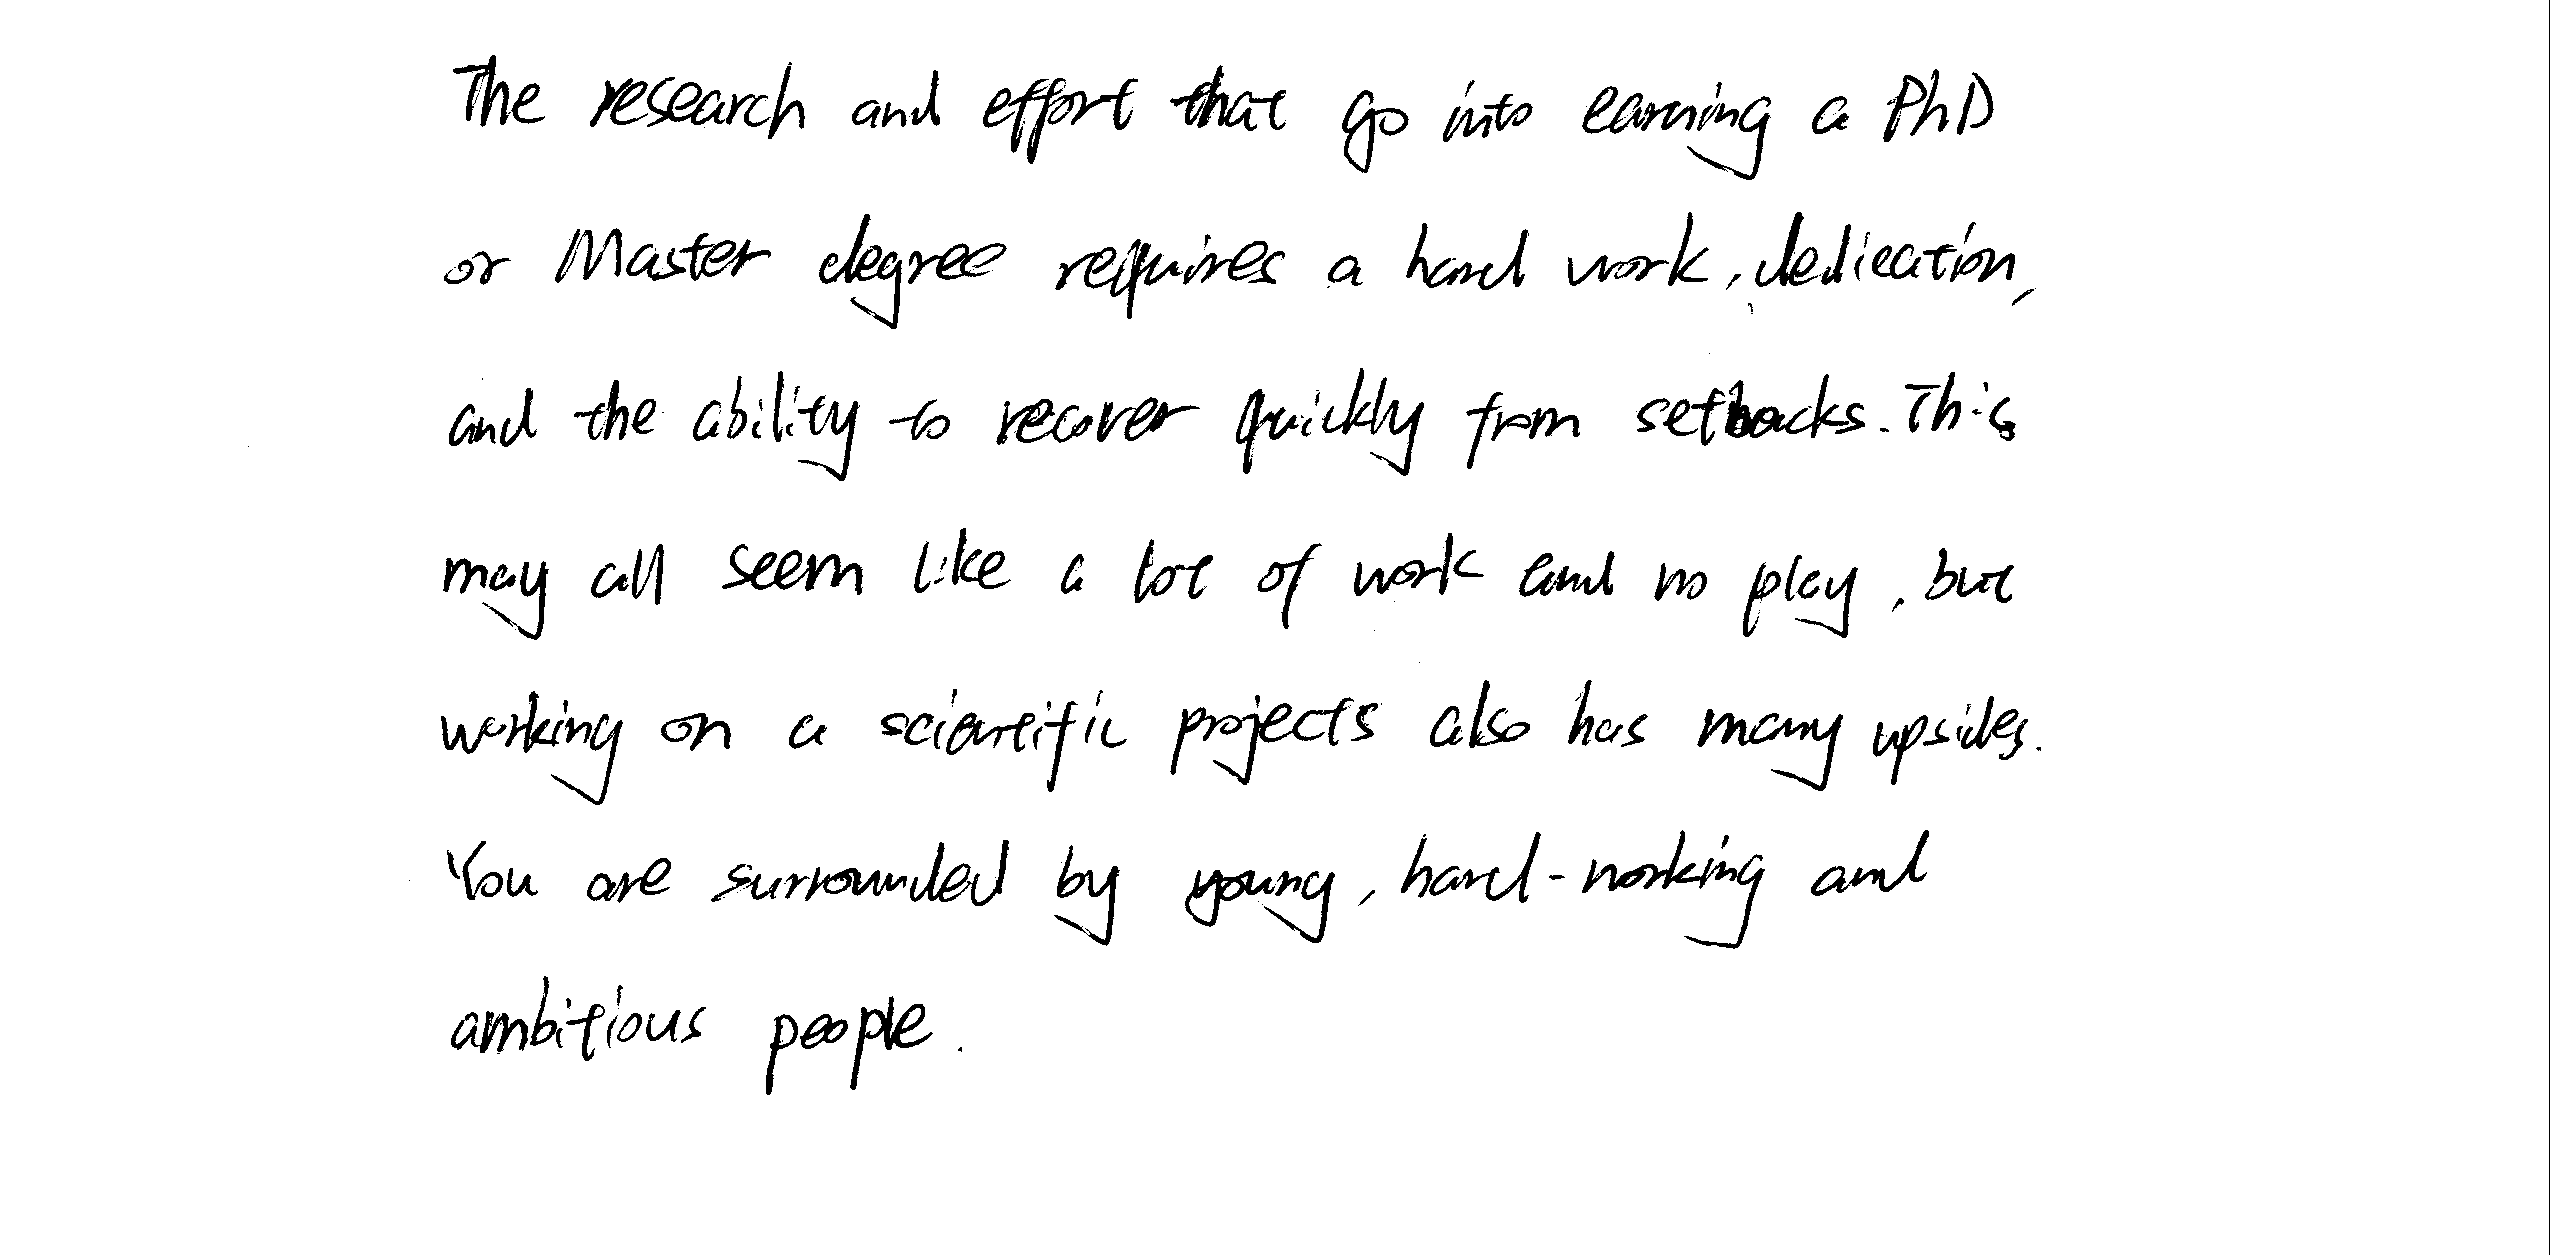 The research and effort that go into earning a PhD
or Master degree requires a hard work, dedication,
and the ability to recover quickly from setbacks. This
may all seem like a lot of work and no play, but
working on a scientific projects also has many upsides.
You are surrounded by young, hard-working and
ambitious people.